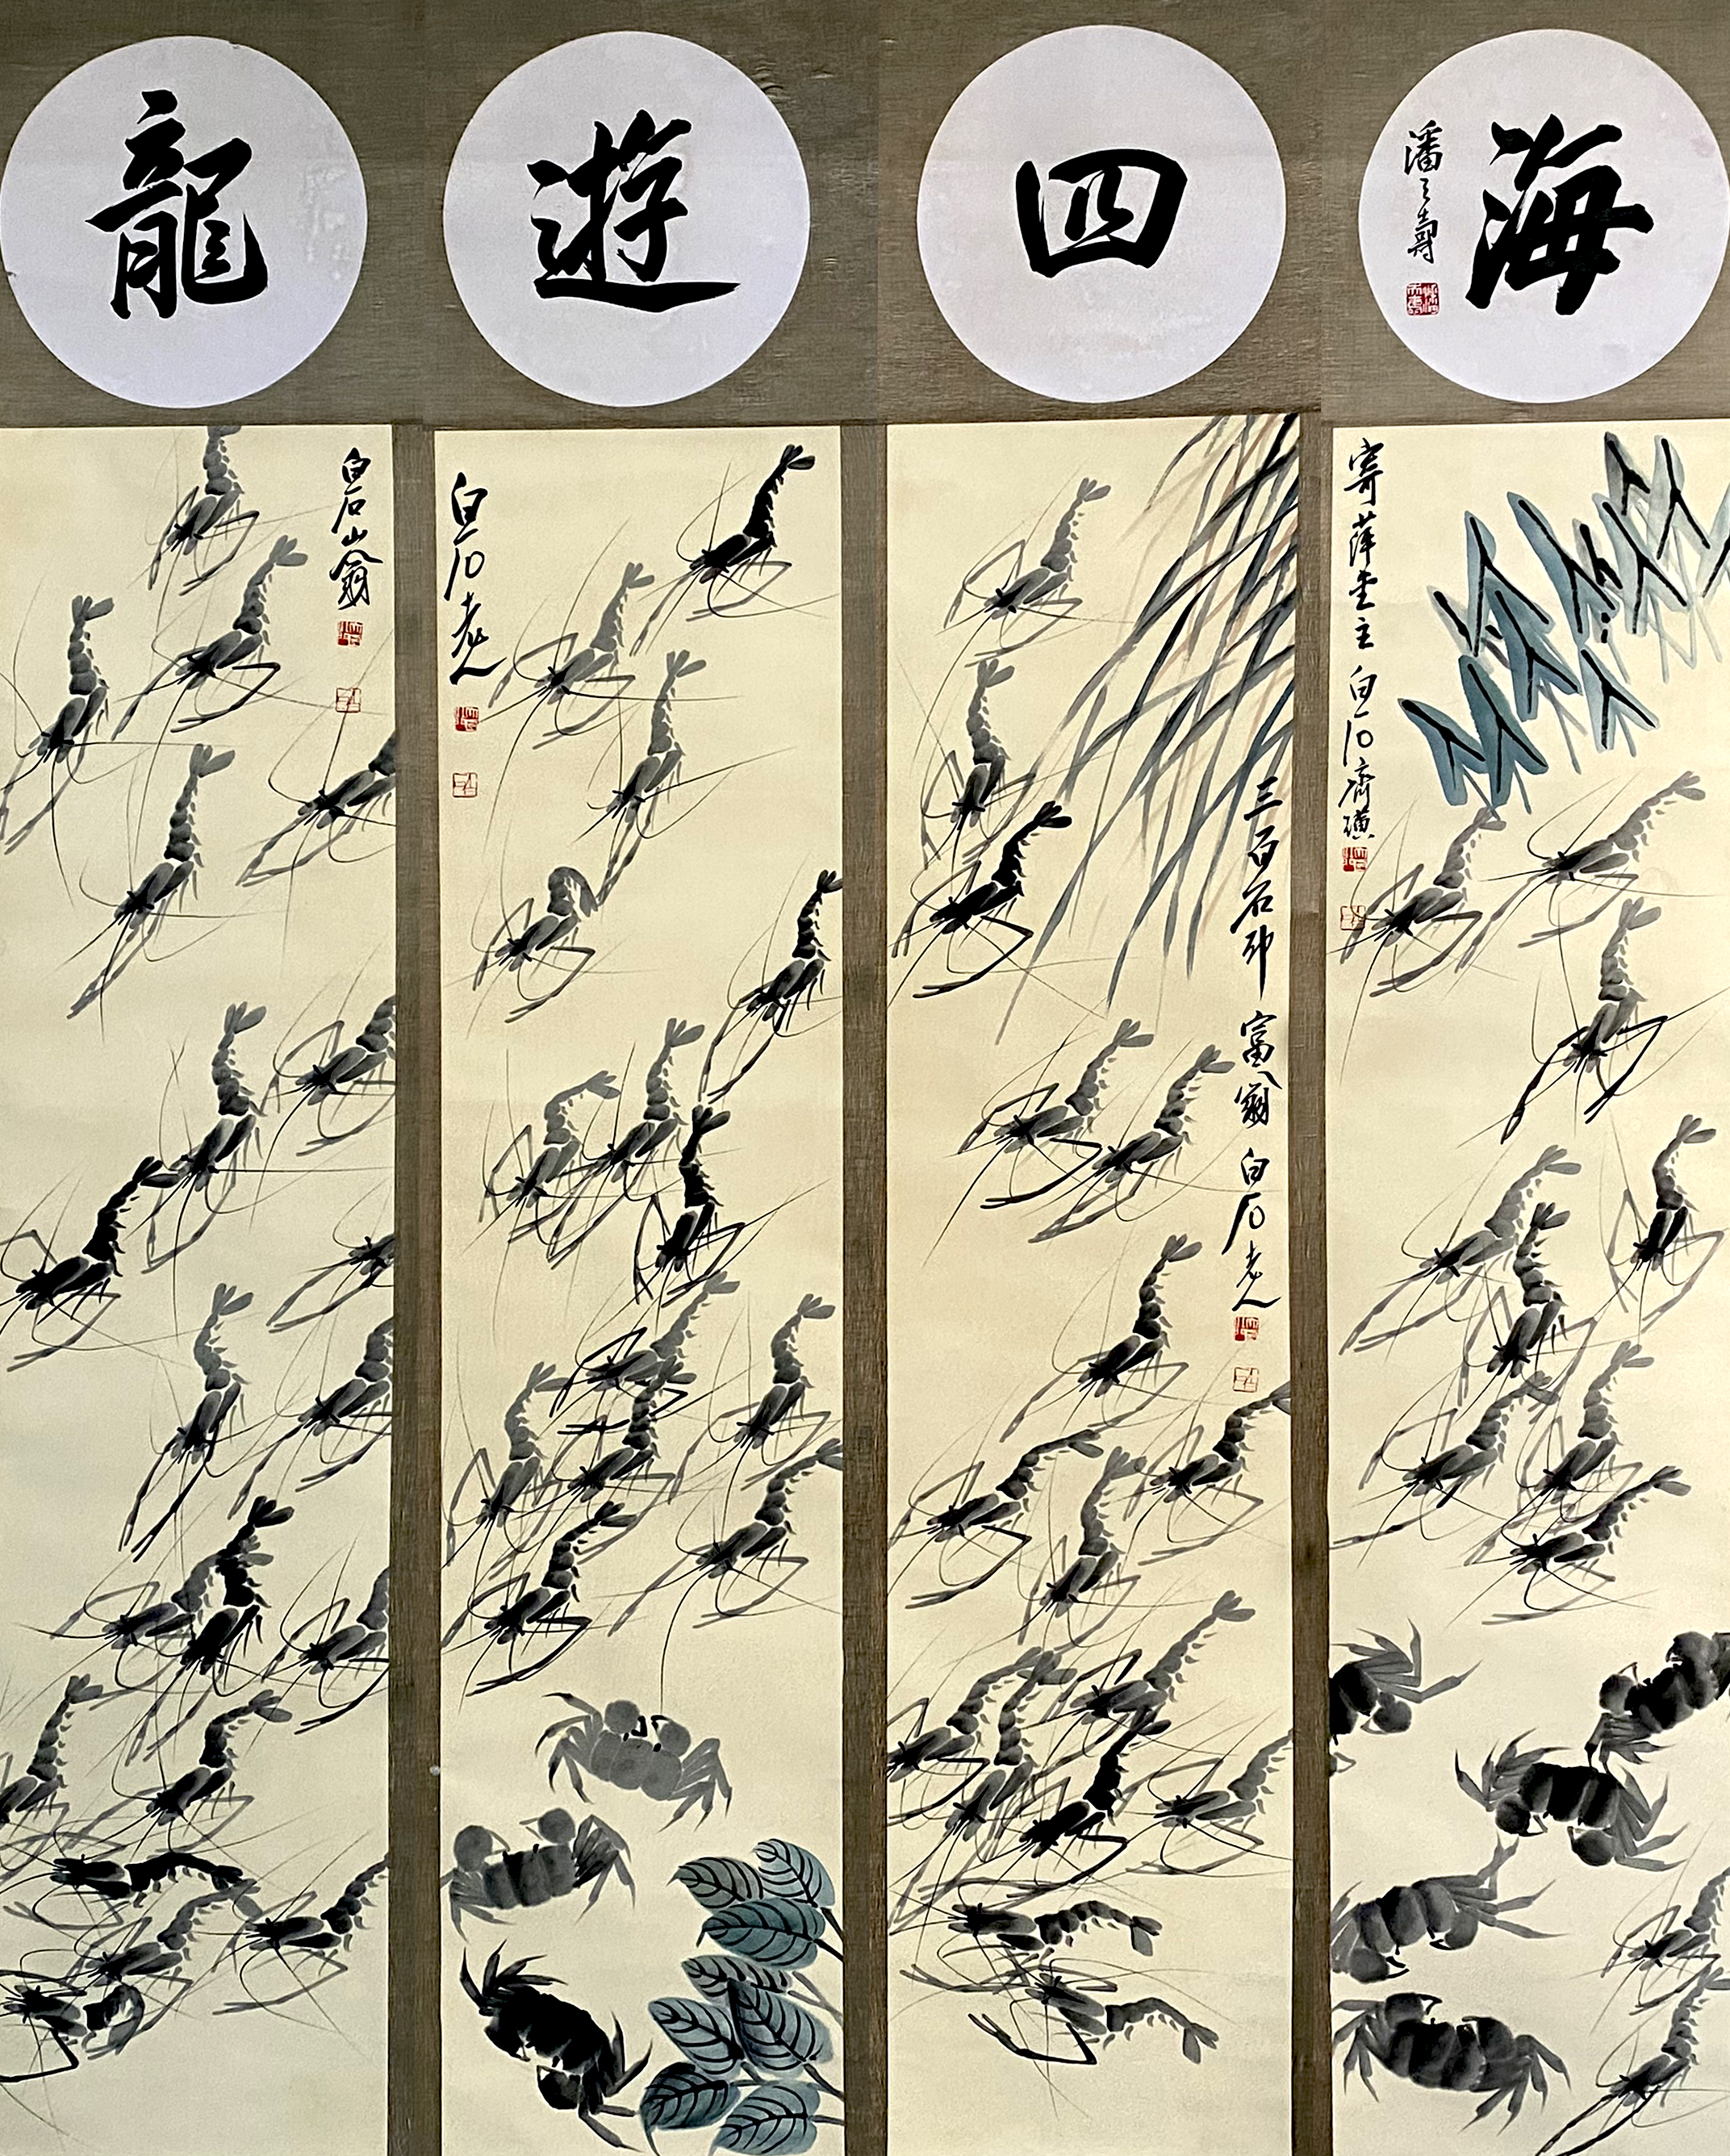 龍
遊
四
海
潘天壽
白石山翁
白石老人
三百石印富翁白石老人
寄萍堂主白石齊璜